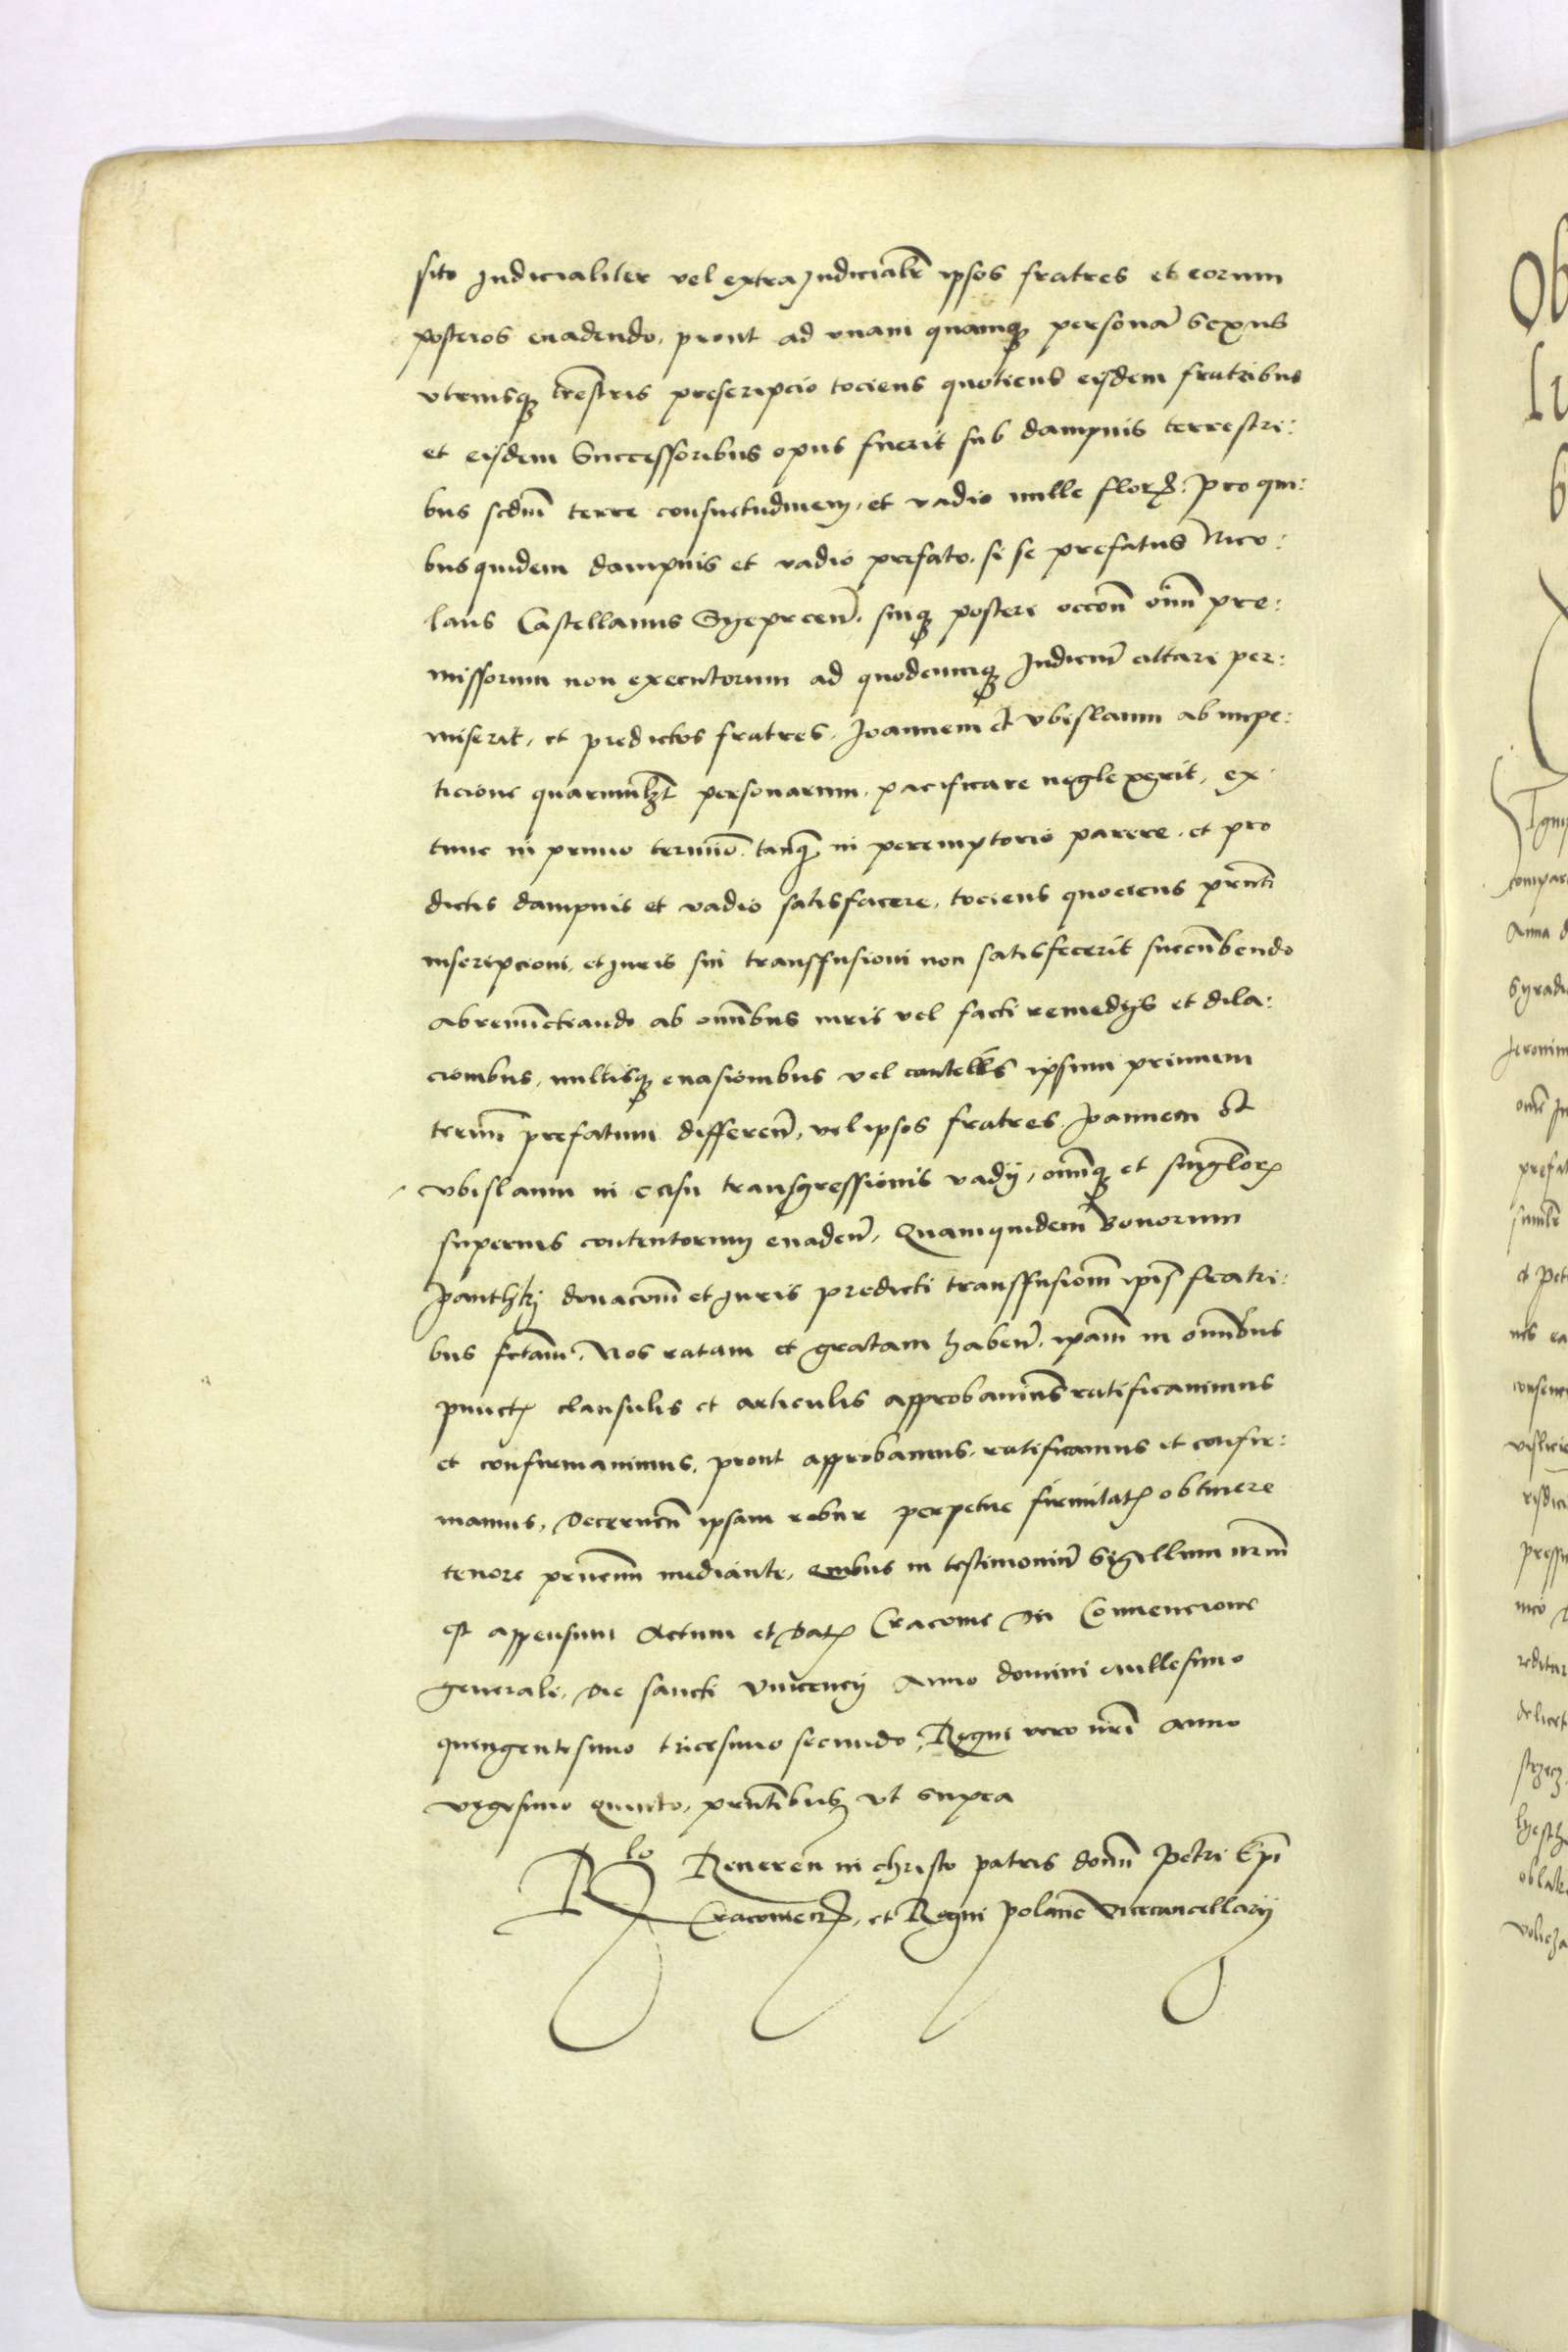 sito Judicialiter vel extraJudicialr̄ ipsos fratres et eorum
posteros euadendo, prout ad vnam quamqȝ personā sexus
vtriusqȝ trēstris prescripcio tociens quotiens eisdem fratribus
et eisdem Successoribus opus fuerit sub dampnis terrestri:
bus scdm̄ terre consuetudinem, et vadio mille florꝝ. Pro qui:
bus quidem dampnis et vadio prefato, si se prefatus Nico:
laus Castellanus Syeprceñ. suiqȝ posteri occoñ oīm̄ pre:
missorum non executorum ad quodcunqȝ Judiciū cittari per:
miserit, et predictos fratres, Joannem et Vbislaum ab impe:
ticione quarumlȝt personarum, pacificare neglexerit, ex
tunc in primo termiō tanqȝ in peremptorio parere, et pro
dictis dampnis et vadio satisfacere, tociens quociens prn̄ti
inscripcioni, et Juris sui transfusioni non satisfecerit succūbendo
abrenūctiando ab om̄ibus iuris vel facti remedys et dila:
cionibus, nullisqȝ euasionibus vel cautelis ipsum primum
term̄ prefatum differeñ, vel ipsos fratres, Joannem et
Vbislaum in casu transgressionis vadij, om̄iqȝ et singlorꝝ
superius contentorum euadeñ, Quamquidem Bonorum
Janthky donacom̄ et Juris predicti transfusiom̄ ipīs fratri:
bus fctam̄, Nos ratam et gratam habeñ, ipam̄ in om̄ibus
punctꝭ clausulis et articulis approbauimus ratificauimus
et confirmauimus, prout approbamus, ratificamus et confir:
mamus, Decerneñ ipsam robur perpetue firmitatꝭ obtinere
tenore prn̄cium mediante, quibus in testimoniū Sigillum nrm̄
est appensum Actum et Datꝭ Cracouie In Conuencione
generali, die sancti Vincencij Anno domini Millesimo
quingentesimo tricesimo secundo, Regni vero nrī anno
vigesimo quinto, prntībusȝ vt supra
Rlo Reuereñ in christo patris domī Petri Epī
Cracouieñ, et Regni Polonie Vicecancellarij